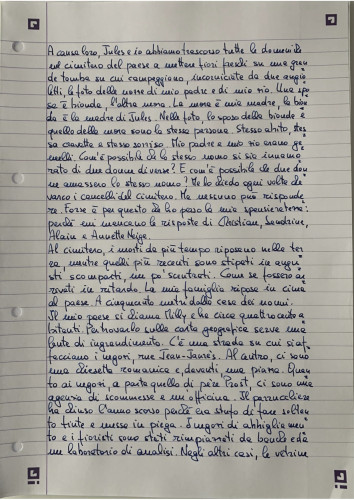 A causa loro, Jules e io abbiamo trascorso tutte le domeniche
nel cimitero del paese a mettere fiori freschi su una gran
de tomba su cui campeggiano, incorniciate da due angio
letti, le foto delle nozze di mio padre e di mio zio. Una spo
sa è bionda, l'altra mora. La mora è mia madre, la bion
da è la madre di Jules. Nella foto, lo sposo della bionda e
quello della mora sono la stessa persona. Stesso abito, stes
sa cravatta e stesso sorriso. Mio padre e mio zio erano ge
melli. Com'è possibile che lo stesso uomo si sia innamo
rato di due donne diverse? E com'è possibile che due don
ne amassero lo stesso uomo? Me lo chiedo ogni volta che
varco i cancelli del cimitero. Ma nessuno può risponde
re. Forse è per questo che ho perso la mia spensieratezza:
perché mi mancano le risposte di Christian, Sandrine,
Alain e Annette Neige.
Al cimitero, i morti da più tempo riposano nella ter
ra, mentre quelli più recenti sono stipati in angu
sti scomparti, un po' scentrati. Come se fossero ar
rivati in ritardo. La mia famiglia riposa in cima
al paese. A cinquanta metri dalla casa dei nonni.
Il mio paese si chiama Milly e ha circa quattrocento a
bitanti. Per trovarlo sulla carta geografica serve una
lente di ingrandimento. C'è una strada su cui si af
facciano i negozi, rue Jean-Jaurès. Al centro, ci sono
una chiesetta romanica e, davanti, una piazza. Quan
to ai negozi, a parte quello di père Prost, ci sono una
agenzia di scommesse e un'officina. Il parrucchiere
ha chiuso l'anno scorso perché era stufo di fare soltan
to tinte e messe in piega. I negozi di abbigliamen
to e i fioristi sono stati rimpiazzati da banche e da
un laboratorio di analisi. Negli altri casi, le vetrine